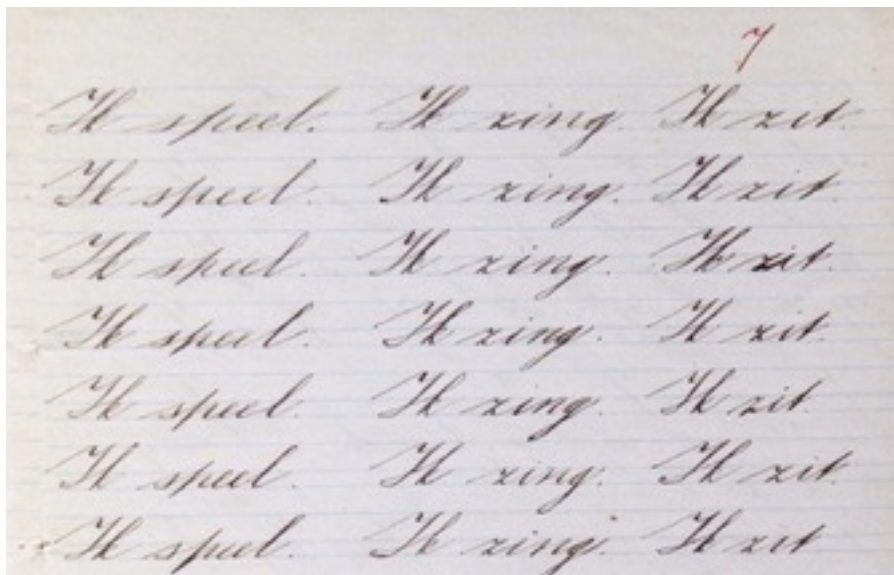 7
Ik speel. Ik zing. Ik zit.
Ik speel. Ik zing. Ik zit.
Ik speel. Ik zing. Ik zit.
Ik speel. Ik zing. Ik zit.
Ik speel. Ik zing. Ik zit.
Ik speel. Ik zing. Ik zit.
Ik speel. Ik zing. Ik zit.